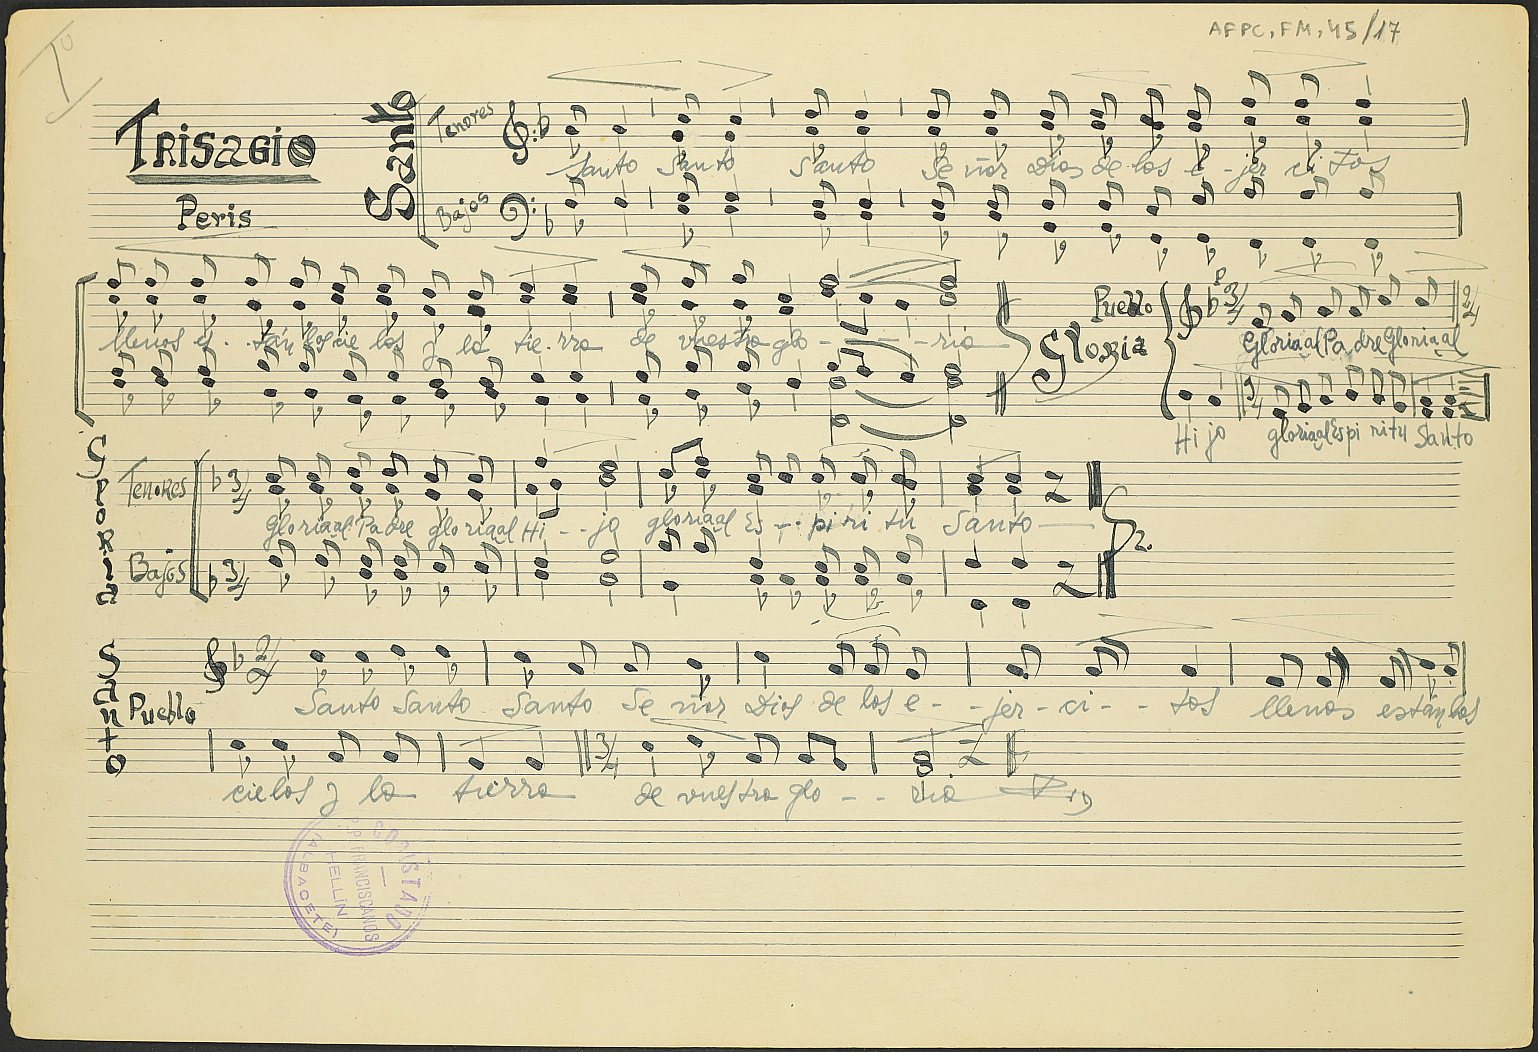 Iº
AFPC, FM, 45/17
TRISAGIO
Peris
Santo
Tenores
Santo Santo Santo Se ñor Dios de los e - jer ci tos
Bajos
llenos es - tán los cie los y la tie - rra de vuestra glo - - - ria
Gloria
Pueblo
P
3/4
2/4
Gloria al Pa dre Gloria al
3/4
Hi jo gloria al Espi ri tu Santo
Gloria
Tenores
3/4
Gloria al Pa dre gloria al Hi - - jo gloria al Es - - pi ri tu Santo
Bajos
3/4
2.
Santo
Pueblo
2/4
Santo Santo Santo Se ñor Dios de los e - - jer - ci - - tos llenos están los
3/4
cie los y la tierra de vuestra glo - - ria Fin
CORISTADO
P.P. FRANCISCANOS
HELLÍN
(ALBACETE)